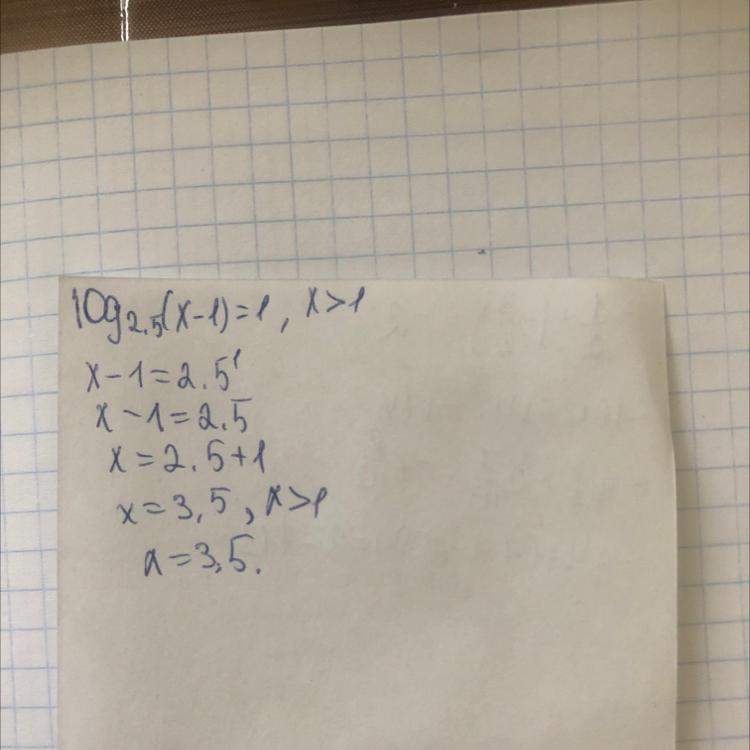 log₂.₅(x-1)=1, x>1
x-1=2.5¹
x-1=2.5
x=2.5+1
x=3,5, x>1
x=3,5.